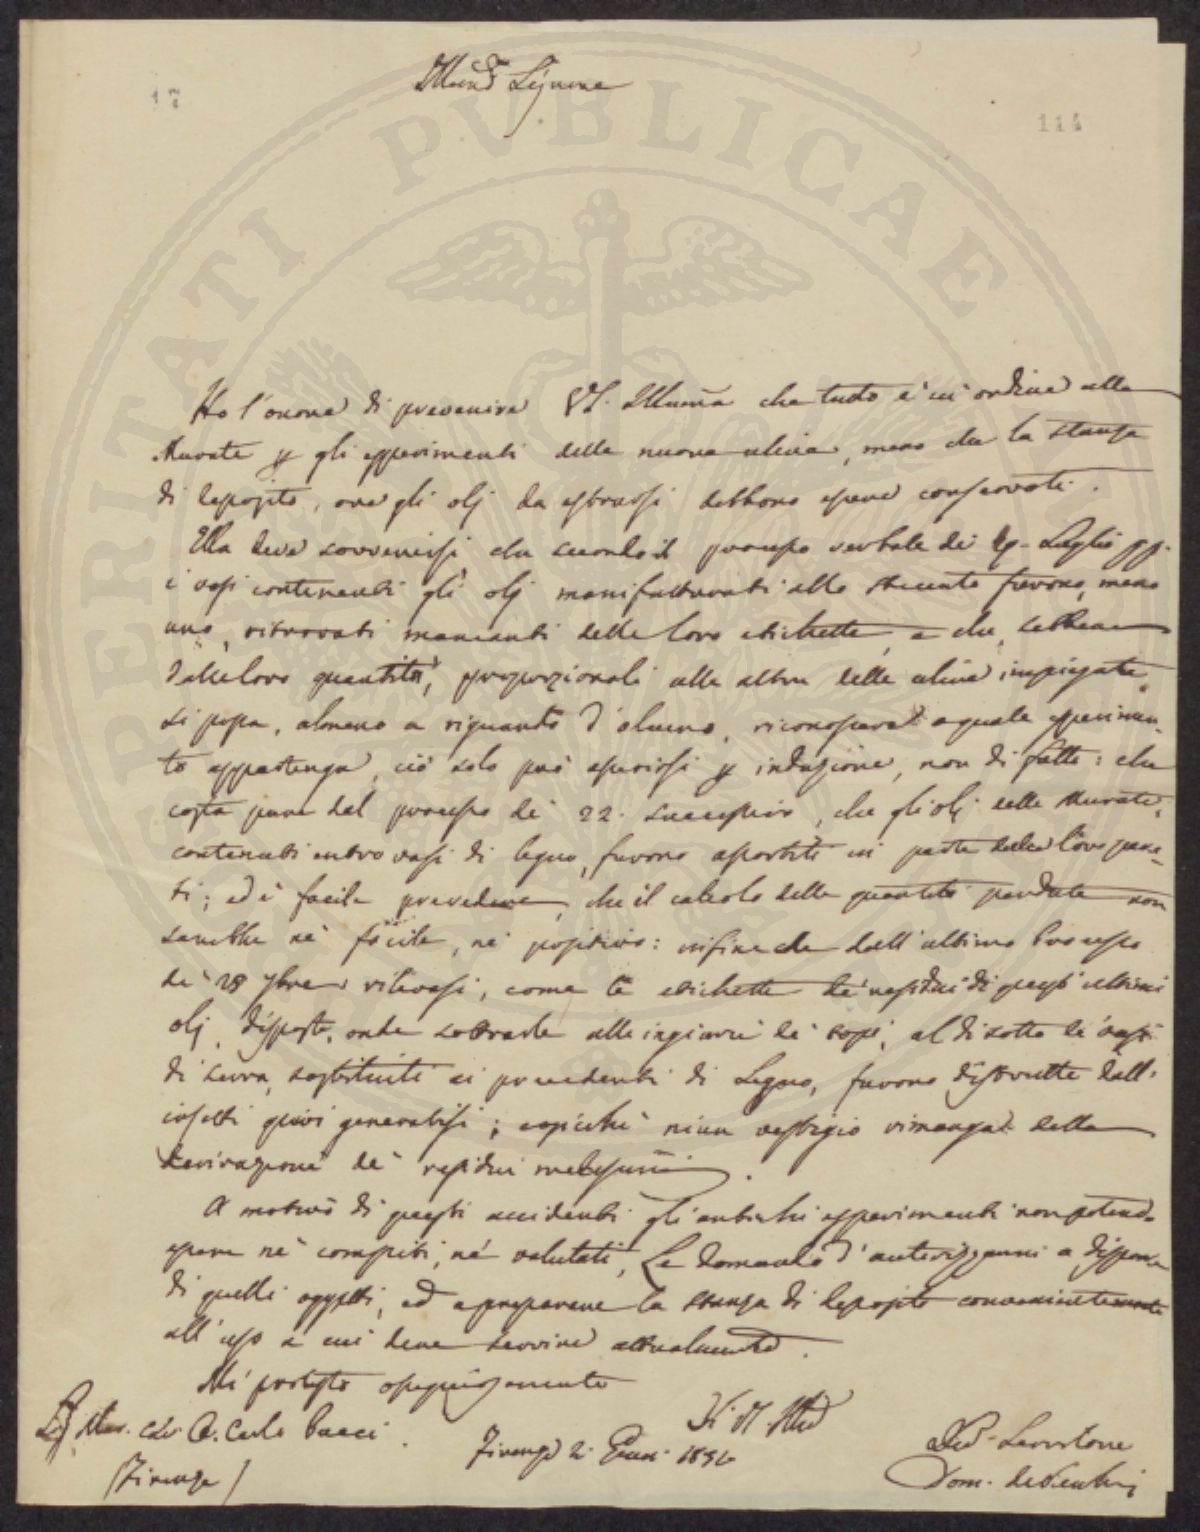 17
114
Signore
Ho l'onore di prevenire VS. Illuma che tutto è in ordine alle
Murate p gli esperimenti delle nuove ulive, meno che la stanza
di deposito, ove gli olj da estrarsi debbono essere conservati.
Ella deve sovvenirsi, che secondo il processo verbale dei Luglio pp.
i vasi contenenti gli olj manifatturati allo furono, meno
uno, ritrovati mancanti delle loro etichette, e che, sebbene
dalle loro quantità, proporzionali alle altre delle ulive impiegate
si possa, almeno a riguardo d'alcuno, riconoscere a quale esperimen-
to appartenga, ciò solo può asserirsi p induzione, non di fatto: che
costa pure dal processo de' 22. successivo, che gli olj delle Murate,
contenuti entro vasi di legno, furono assorbiti in parte dalle loro pare-
ti; ed è facile prevedere, che il calcolo delle quantità perdute non
sarebbe nè facile, nè positivo: infine che dall'ultimo Processo
de' 28 rilevasi, come le etichette de' residui di questi ultimi
olj, disposte, onde sottrarle alle ingiurie de' topi, al di sotto de' vasi
di terra, sostituiti ai precedenti di Legno, furono distrutte dall'
insetti quivi generatisi; cosicchè niun vestigio rimanga della
derivazione de' residui medesimi.
A motivo di questi accidenti gli antichi esperimenti non potendo
essere nè compiti, nè valutati, Le domando d'autorizzarmi a disporre
di quelli oggetti, ed a preparare la stanza di deposito convenientemente
all'uso a cui deve servire attualmente.
Mi protesto ossequiosamente
Di V.S. Illma
Carlo Pucci
(Firenze)
Firenze 2. 183
Servitore
Dom.